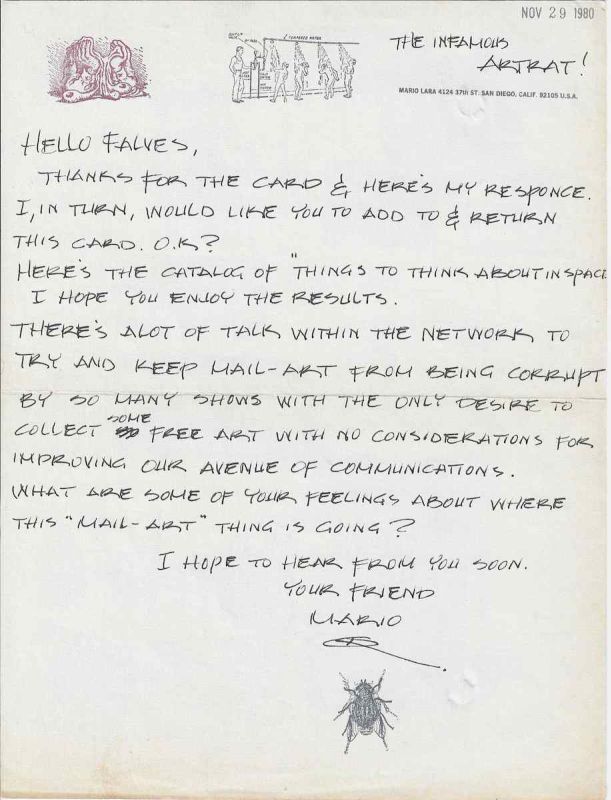 NOV 29 1980
THE INFAMOUS
ARTRAT!
MARIO LARA 4124 37th ST. SAN DIEGO, CALIF. 92105 U.S.A.
HELLO FALVES,
THANKS FOR THE CARD & HERE'S MY RESPONCE.
I, IN TURN, WOULD LIKE YOU TO ADD TO & RETURN
THIS CARD. O.K?
HERE'S THE CATALOG OF "THINGS TO THINK ABOUT IN SPACE
I HOPE YOU ENJOY THE RESULTS.
THERE'S ALOT OF TALK WITHIN THE NETWORK TO
TRY AND KEEP MAIL-ART FROM BEING CORRUPT
BY SO MANY SHOWS WITH THE ONLY DESIRE TO
COLLECT SOME FREE ART WITH NO CONSIDERATIONS FOR
IMPROVING OUR AVENUE OF COMMUNICATIONS.
WHAT ARE SOME OF YOUR FEELINGS ABOUT WHERE
THIS "MAIL-ART" THING IS GOING?
I HOPE TO HEAR FROM YOU SOON.
YOUR FRIEND
MARIO